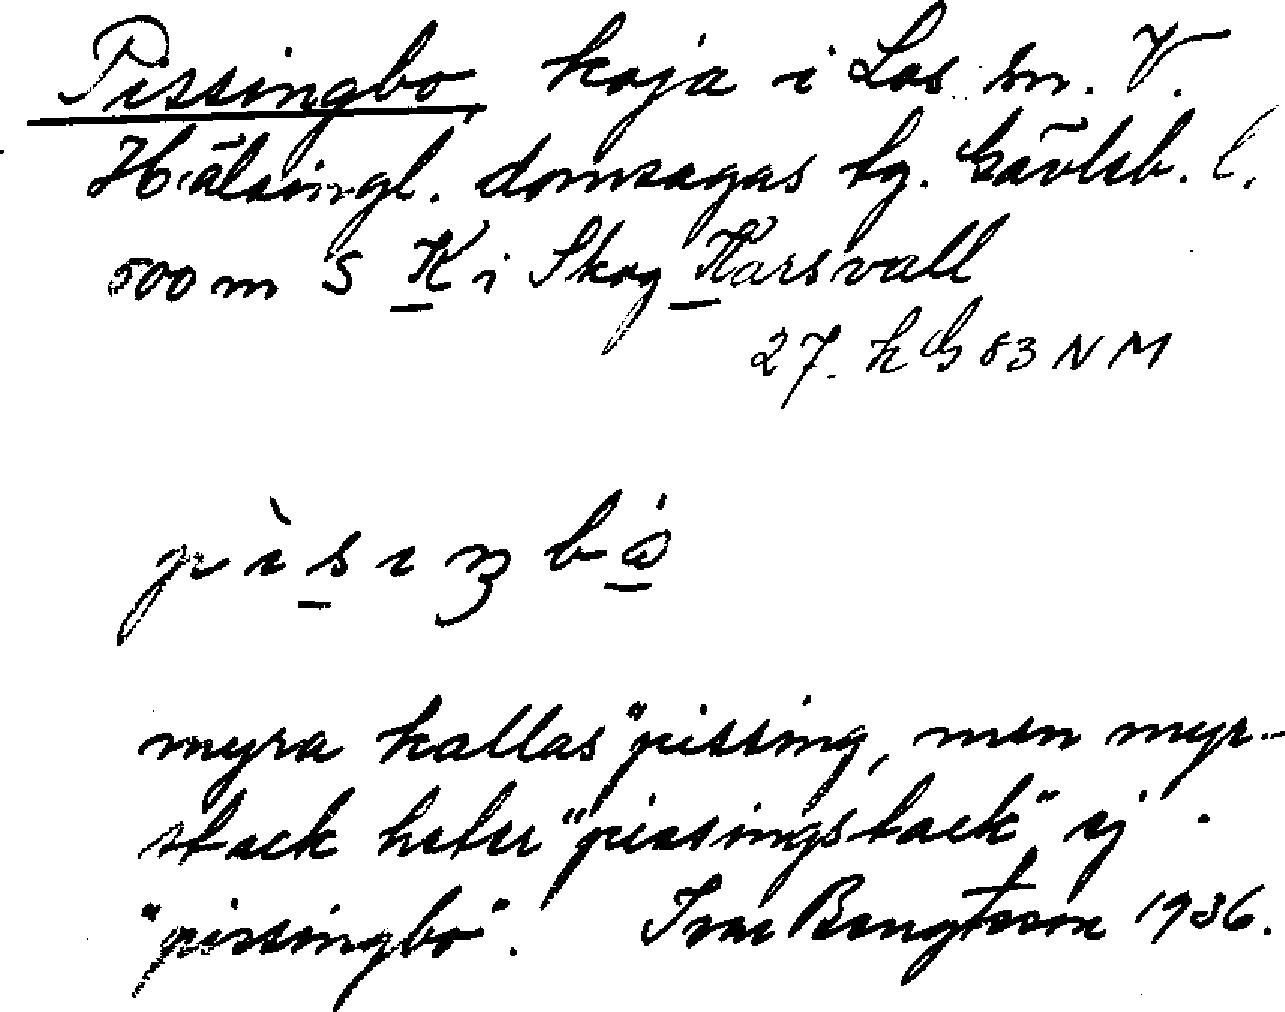 Pissingbo koja i Los sn. V.
Hälsingl. domsagas tg. Gävleb. l.
500 m S K i Skog Karsvall
27. h G 83 N M
pìsıŋbó
myra kallas "pissing, men myr-
stack heter "pissingstack" ej
"pissingbo". Ivar Bengtsson 1936.